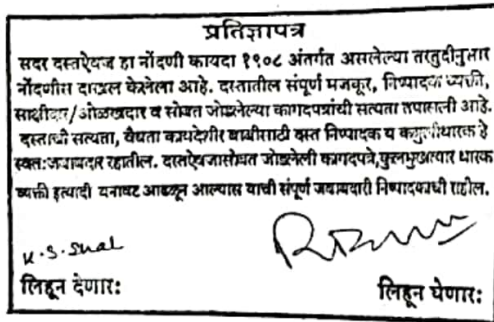 प्रतिज्ञापत्र
सदर दस्तऐवज हा नोंदणी कायदा १९०८ अंतर्गत असलेल्या तरतुदीनुसार
नोंदणीस दाखल केलेला आहे. दस्तातील संपूर्ण मजकूर, निष्पादक व्यक्ती,
साक्षीदार/ओळखदार व सोबत जोडलेल्या कागदपत्रांची सत्यता तपासली आहे.
दस्ताची सत्यता, वैधता कायदेशीर बाबीसाठी दस्त निष्पादक व कबुलीधारक हे
स्वतः जबाबदार रहातील. दस्तऐवजासोबत जोडलेली कागदपत्रे, कुलमुखत्यार धारक
व्यक्ती इत्यादी बनावट आढळून आल्यास याची संपूर्ण जबाबदारी निष्पादकाची राहील.
K. S. Shah
लिहून देणार:
लिहून घेणार: